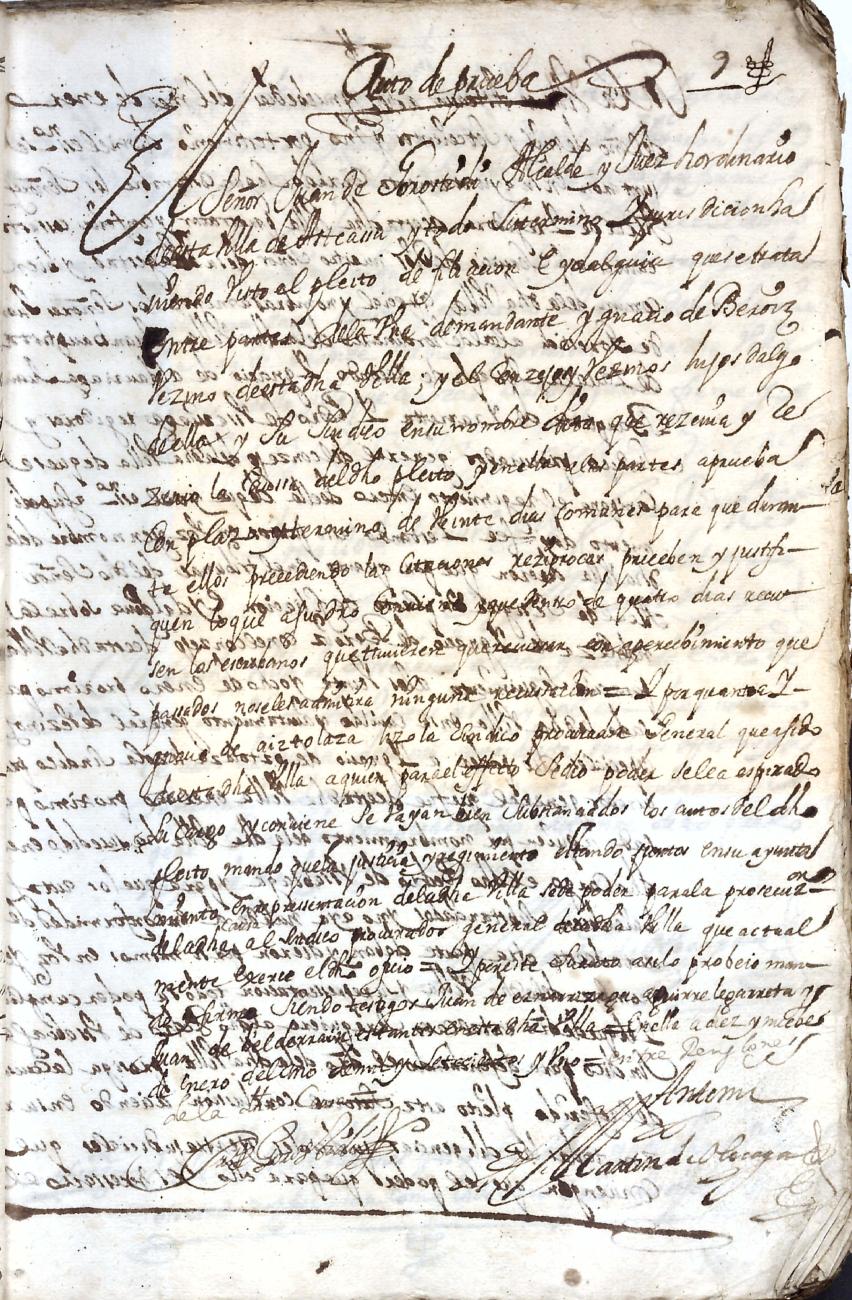 Auto de prueba
9
El
Señor Juan de Gorostidi Alcalde y Juez hordinario
desta Villa de Ateaun y todo su termino y Jurisdicion ha
viendo visto el pleito de filiacion e ydalguia que se trata
entre partes de la Una demandante Ygnacio de Beroiz
vezino de esta dha Villa, y el Conzejo y vezinos hijos dalgo
de ella y su Sindico en su nombre Dixo que rezevia y Re
zivio la Causa del dho pleito y en ella a las partes aprueba
con plazo y termino de Veinte dias comunes para que duran
te ellos precediendo las Citaciones reziprocas prueben y justifi
quen lo que a su dro y que dentro de quatro dias recu
sen los escribanos que tuvieren que recusar con apercibimiento que
passados no se les admitira ninguna recusacion = Y por quanto a Y
gnacio de aiztolaza Sindico procurador General que a sido
de esta dha Villa a quien para el effecto se dio poder se le a espirado
su Cargo y conviene se vayan bien substanciados los autos del dho
Pleito mando que la justicia y regimiento estando juntos en su ayunta
miento en representacion de la dha Villa se de poder para la prosecuzon
de la dha causa al Sindico procurador general de esta dha Villa que actual
mente exerce el dho oficio = Y por este su auto asi lo probeio man
do y firmo siendo testigos Juan de aguirre legarreta y
Juan de beldarrain estantes en esta dha Villa = En ella a diez y nuebe
de Enero del año de mil y setecientos y = entre Renglones
de la dha Causa
Antemi
Martin de Olozaga